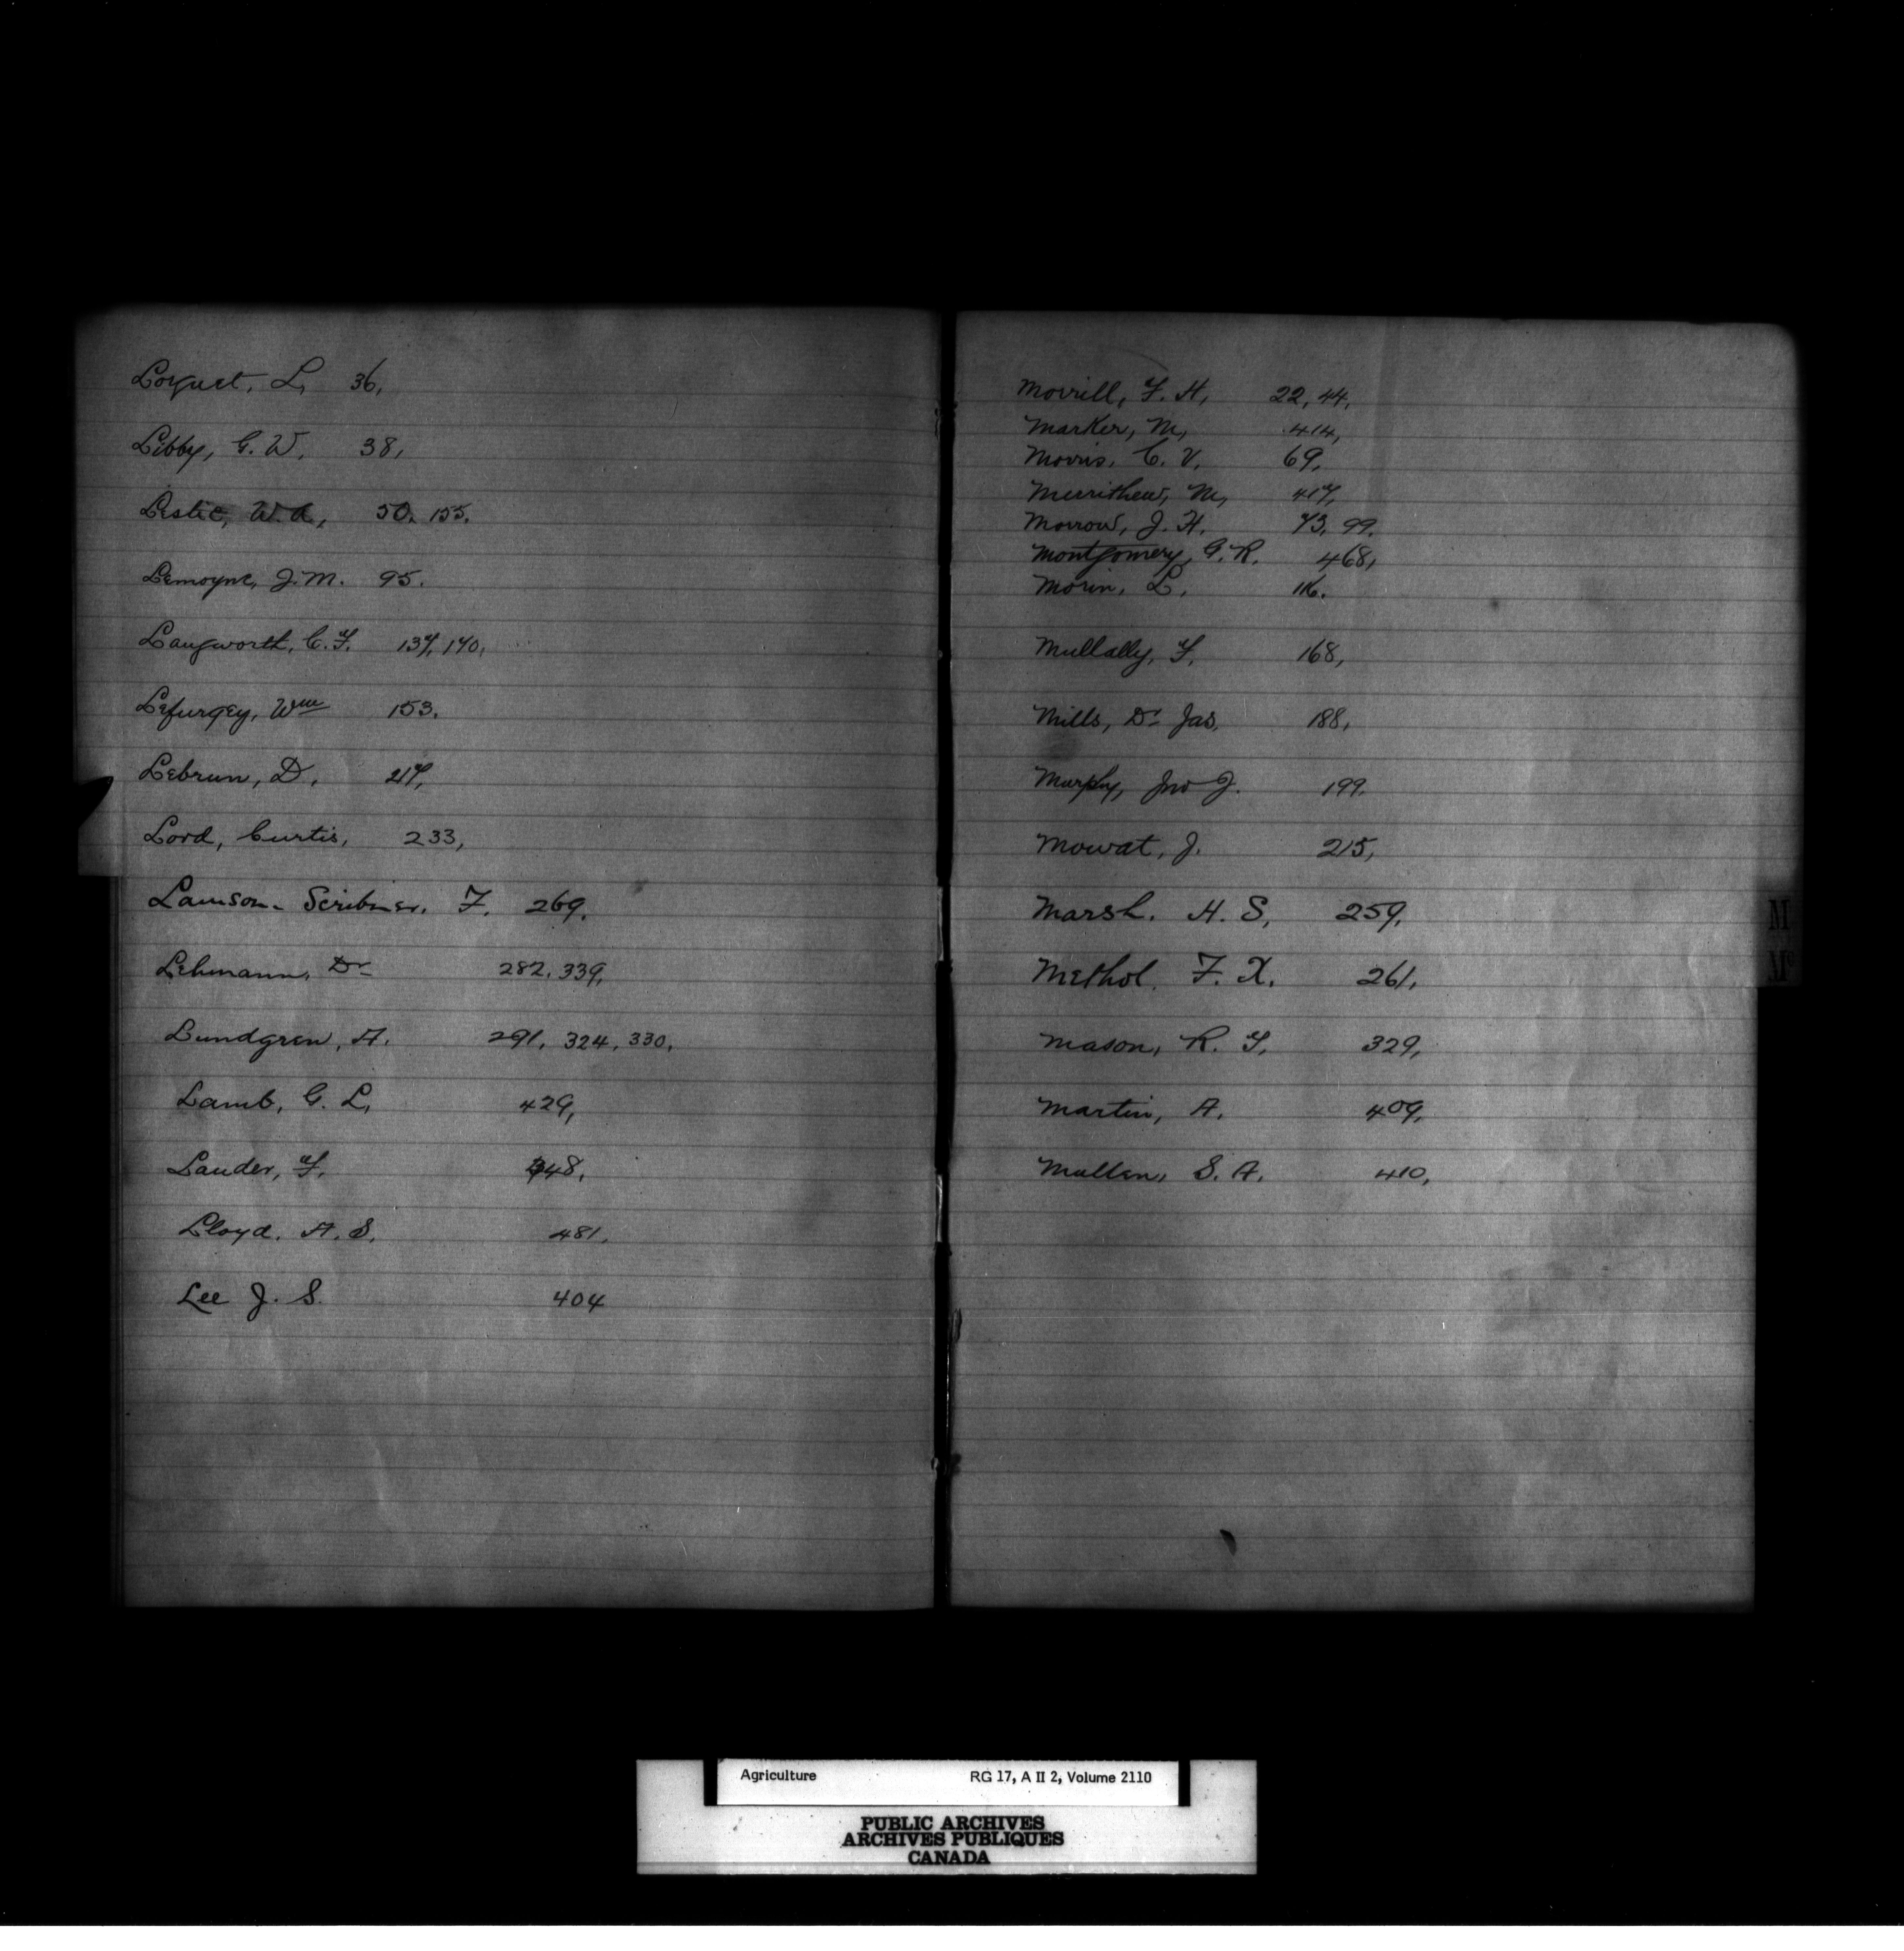 Loquet, L, 36,
Libby, G. W. 38,
Leslie, W. A, 50, 155.
Lemoyne, J. M. 95.
Langworth, C. F. 137, 170,
Lefurgey, Wm 153.
Lebrun, D. 217,
Lord, Curtis, 233,
Lamson-Scribner. F. 269.
Lehmann, Dr 282, 339,
Lundgren, A. 291, 324, 330,
Lamb, G. L, 429,
Lauder, F. 348,
Lloyd. A. S. 481.
Lee J. S. 404
Morrill, F. H, 22, 44,
Marker, M, 414,
Morris, C. V. 69,
Merrithew, M, 417,
Morrow, J. H. 73, 99.
Montgomery, G. R. 468,
Morin, L. 116.
Mullally, F. 168,
Mills, Dr Jas. 188,
Murphy, Jno J. 199.
Mowat, J. 215,
Marsh. H. S, 259,
Methol. F. X. 261,
Mason, R. F. 329,
Martin, A. 409,
Mullen, S. A. 410,
M
Mc
Agriculture RG 17, A II 2, Volume 2110
PUBLIC ARCHIVES
ARCHIVES PUBLIQUES
CANADA